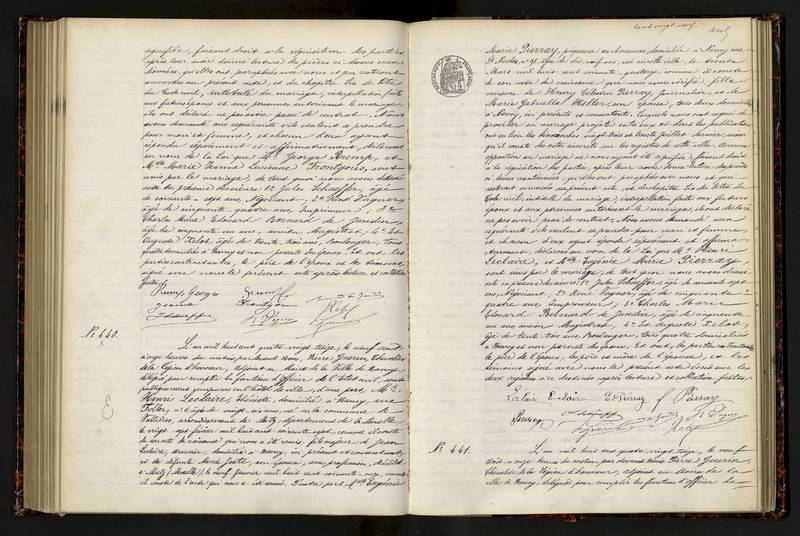 signifiée, faisant droit à la réquisition des parties
après leur avoir donné lecture des pièces ci-dessus men-
tionnées, qu'elles ont paraphées avec nous et qui resteront
annexées au présent acte, et du chapitre Six du titre
du Code civil, intitulé du mariage, interpellation faite
aux futurs époux et aux personnes autorisant le mariage,
ils ont déclaré ne pas avoir passé de contrat. Nous
avons demandé aux requérants s'ils veulent se prendre
pour mari et femme, et chacun d'eux ayant
répondu séparément et affirmativement, déclarons
au nom de la loi que Mr. George Rump, et
Mlle Marie Jeanne Lucienne sont
unis par le mariage, de tout quoi nous avons dressé
acte en présence des sieurs: 1º Jules Schaeffer, âgé
de soixante-sept ans, Négociant, 2º René Pagnon,
âgé de cinquante-quatre ans, Imprimeur, 3º
Charles Marie Edouard Bernard de Jandin
âgé de cinquante un ans, ancien Magistrat, 4º et
Auguste Zelot, âgé de trente-trois ans, Boulanger, tous
quatre domiciliés à Nancy et non parents des époux. Et ont, les
parties contractantes, le père de l'époux et les témoins
signé avec nous le présent acte après lecture et collation
faites.
Rump Georges
Schaeffer
Nº 440.
L'an mil huit cent quatre vingt treize, le neuf août
à onze heures du matin, par devant Nous, Pierre Guérin, Chevalier
de la Légion d'honneur, adjoint au Maire de la Ville de Nancy,
délégué pour remplir les fonctions d'officier de l'état civil, sont
publiquement comparus en l'hôtel de ville d'une part, Mr.
Henri Leclaire, Ebéniste, domicilié à Nancy, rue
âgé de vingt-six ans, né en la commune de
Vallières, arrondissement de Metz, département de la Moselle
le vingt-sept février mil huit cent soixante-sept, comme il conste
de son acte de naissance qui nous a été remis, fils majeur de Jean
Leclaire, domicilié à Nancy, ici présent et consentant,
et de défunte Marie son épouse, sans profession, décédée
à Metz (Moselle), le neuf janvier mil huit cent soixante-onze, comme
il conste de l'acte qui nous a été remis. D'autre part, Mlle Eugénie
Marie Pierray, piqueuse en chaussures, domiciliée à Nancy rue
St Nicolas, nº 91, âgée de dix-neuf ans, née en cette ville, le trente
Mars mil huit cent soixante-quatorze comme il conste
de son acte de naissance que nous avons vérifié, fille
mineure de Henry Célestin Pierray, Journalier, et de
Marie Gabrielle son épouse, tous deux domiciliés
à Nancy, ici présents et consentants. Lesquels nous ont requis de
procéder au mariage projeté entre eux et dont les publications
ont eu lieu les dimanches vingt-trois et trente juillet dernier, ainsi
qu'il conste des actes inscrits sur les registres de cette ville, aucune
opposition au mariage ne nous ayant été signifiée, faisant droit
à la réquisition des parties, après leur avoir donné lecture des pièces
ci-dessus mentionnées, qu'elles ont paraphées avec nous et qui
resteront annexées au présent acte, et du chapitre Six du titre du
Code civil, intitulé du mariage, interpellation faite aux futurs
époux et aux personnes autorisant le mariage, ils ont déclaré
ne pas avoir passé de contrat. Nous avons demandé aux
requérants s'ils veulent se prendre pour mari et femme,
et chacun d'eux ayant répondu séparément et affirma-
tivement, déclarons au nom de la loi que Mr. Henri
Leclaire, et Mlle Eugénie Marie Pierray
sont unis par le mariage, de tout quoi nous avons dressé
acte en présence des sieurs: 1º Jules Schaeffer, âgé de soixante-sept
ans, Négociant, 2º René Pagnon, âgé de cinquante-
quatre ans, Imprimeur, 3º Charles Marie
Edouard Bernard de Jandin, âgé de cinquante
un ans, ancien Magistrat, 4º et Auguste Zelot,
âgé de trente-trois ans, Boulanger, tous quatre domiciliés
à Nancy et non parents des époux. Et ont, les parties contractantes
le père de l'époux, les père et mère de l'épouse, et les
témoins signé avec nous le présent acte inscrit sur les
deux registres à ce destinés après lecture et collation faites.
E. Pierray Pierray
Nº 441.
L'an mil huit cent quatre vingt treize, le neuf
août, à onze heures du matin, par devant Nous Pierre Guérin
Chevalier de la Légion d'honneur, adjoint au Maire de la
ville de Nancy, délégué pour remplir les fonctions d'officier de